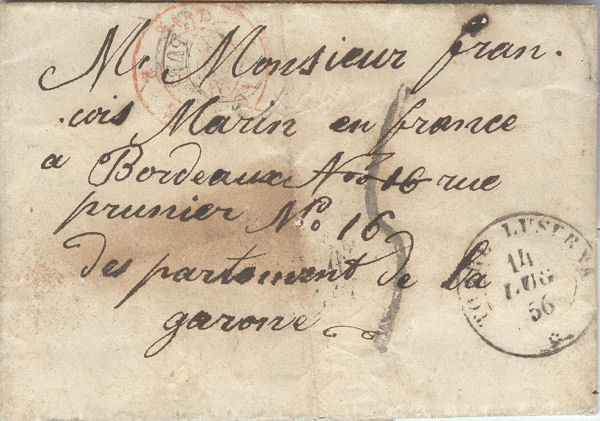 M. Monsieur fran.
.cois Marin en france
a Bordeaux No 16 rue
prunier No. 16
des partement de la
garone
TORRE LUSERNA
14
LUG
56